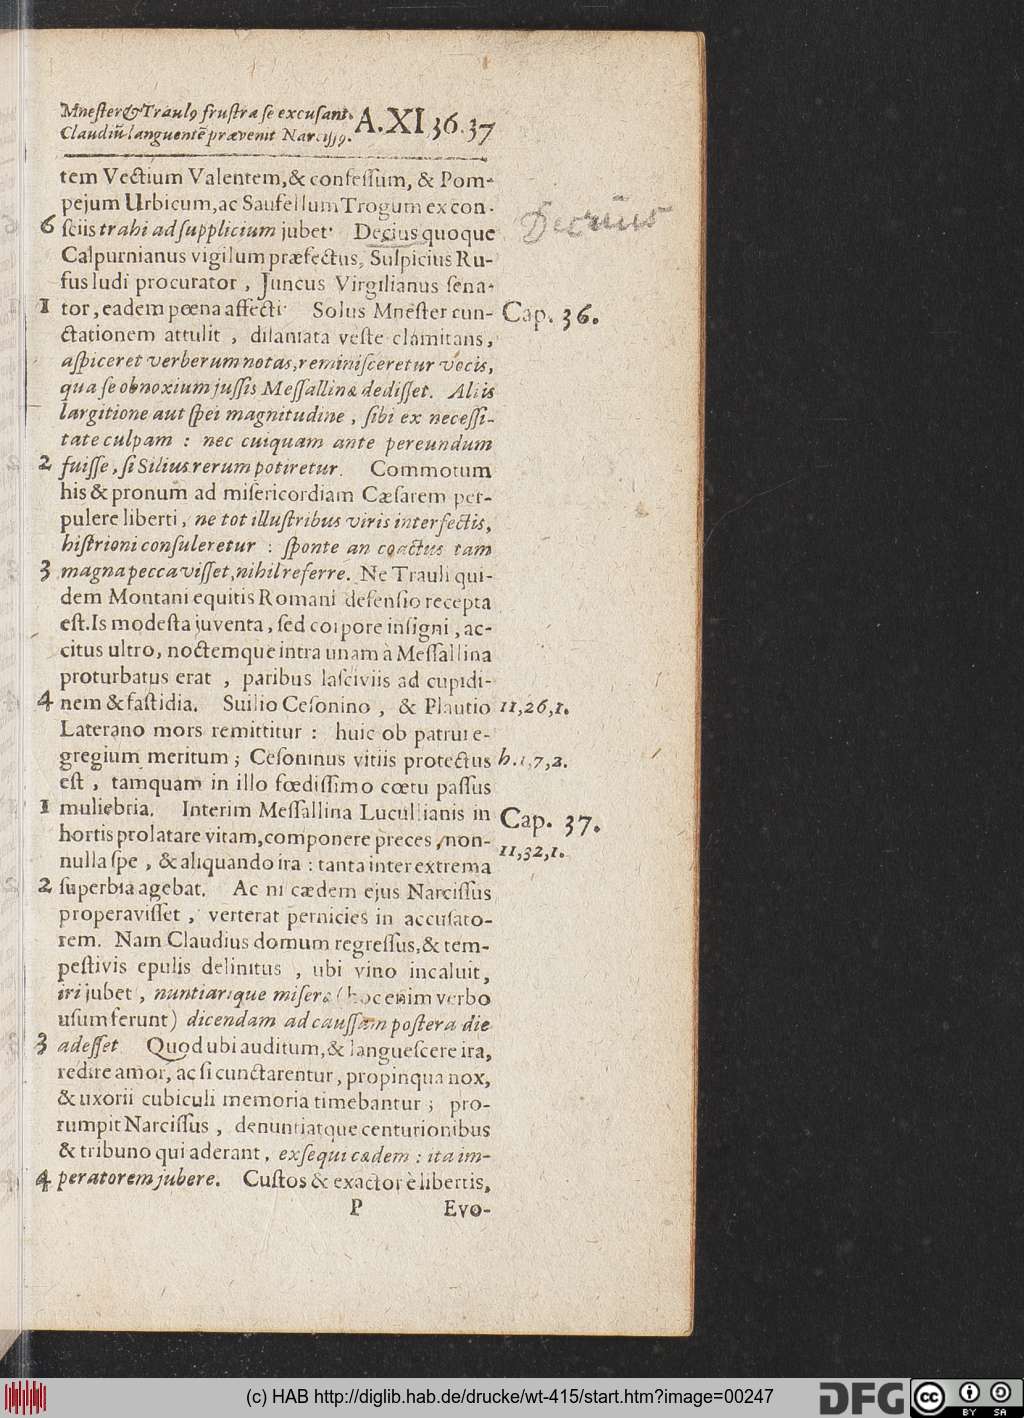 Mneſter & Traulꝰ fruſtra ſe excuſant.
Claudiū languentē prævenit Narciſſꝰ.
A. XI 36. 37
tem Vectium Valentem, & confeſſum, & Pom-
pejum Urbicum, ac Saufellum Trogum ex con-
6 ſciis trahi ad ſupplicium jubet. Decius quoque
Decrius
Calpurnianus vigilum præfectus, Sulpicius Ru-
fus ludi procurator, Juncus Virgilianus ſena-
1 tor, eadem pœna affecti. Solus Mneſter cun-
Cap. 36.
ctationem attulit, dilaniata veſte clamitans,
aſpiceret verberum notas, reminiſceretur vocis,
qua ſe obnoxium juſſis Meſſallinæ dediſſet. Aliis
largitione aut ſpei magnitudine, ſibi ex neceſſi-
tate culpam : nec cuiquam ante pereundum
2 fuiſſe, ſi Silius rerum potiretur. Commotum
his & pronum ad miſericordiam Cæſarem per-
pulere liberti, ne tot illuſtribus viris interfectis,
hiſtrioni conſuleretur : ſponte an coactus tam
3 magna peccaviſſet, nihil referre. Ne Trauli qui-
dem Montani equitis Romani defenſio recepta
eſt. Is modeſta juventa, ſed corpore inſigni, ac-
citus ultro, noctemque intra unam à Meſſallina
proturbatus erat, paribus laſciviis ad cupidi-
4 nem & faſtidia. Suilio Ceſonino, & Plautio
11,26,1.
Laterano mors remittitur : huic ob patrui e-
gregium meritum ; Ceſoninus vitiis protectus
h.1,7,2.
eſt, tamquam in illo fœdiſſimo cœtu paſſus
1 muliebria. Interim Meſſallina Lucullianis in
Cap. 37.
hortis prolatare vitam, componere preces, non-
11,32,1.
nulla ſpe, & aliquando ira : tanta inter extrema
2 ſuperbia agebat. Ac ni cædem ejus Narciſſus
properaviſſet, verterat pernicies in accuſato-
rem. Nam Claudius domum regreſſus, & tem-
peſtivis epulis delinitus, ubi vino incaluit,
iri jubet, nuntiarique miſeræ (hoc enim verbo
uſum ferunt) dicendam ad cauſſam poſtera die
3 adeſſet. Quod ubi auditum, & langueſcere ira,
redire amor, ac ſi cunctarentur, propinqua nox,
& uxorii cubiculi memoria timebantur ; pro-
rumpit Narciſſus, denuntiatque centurionibus
& tribuno qui aderant, exſequi cædem : ita im-
4 peratorem jubere. Cuſtos & exactor è libertis,
P Evo-
(c) HAB http://diglib.hab.de/drucke/wt-415/start.htm?image=00247
DFG
cc BY SA